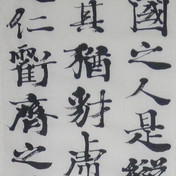 國之人是
其猶豺虎
仁齊之